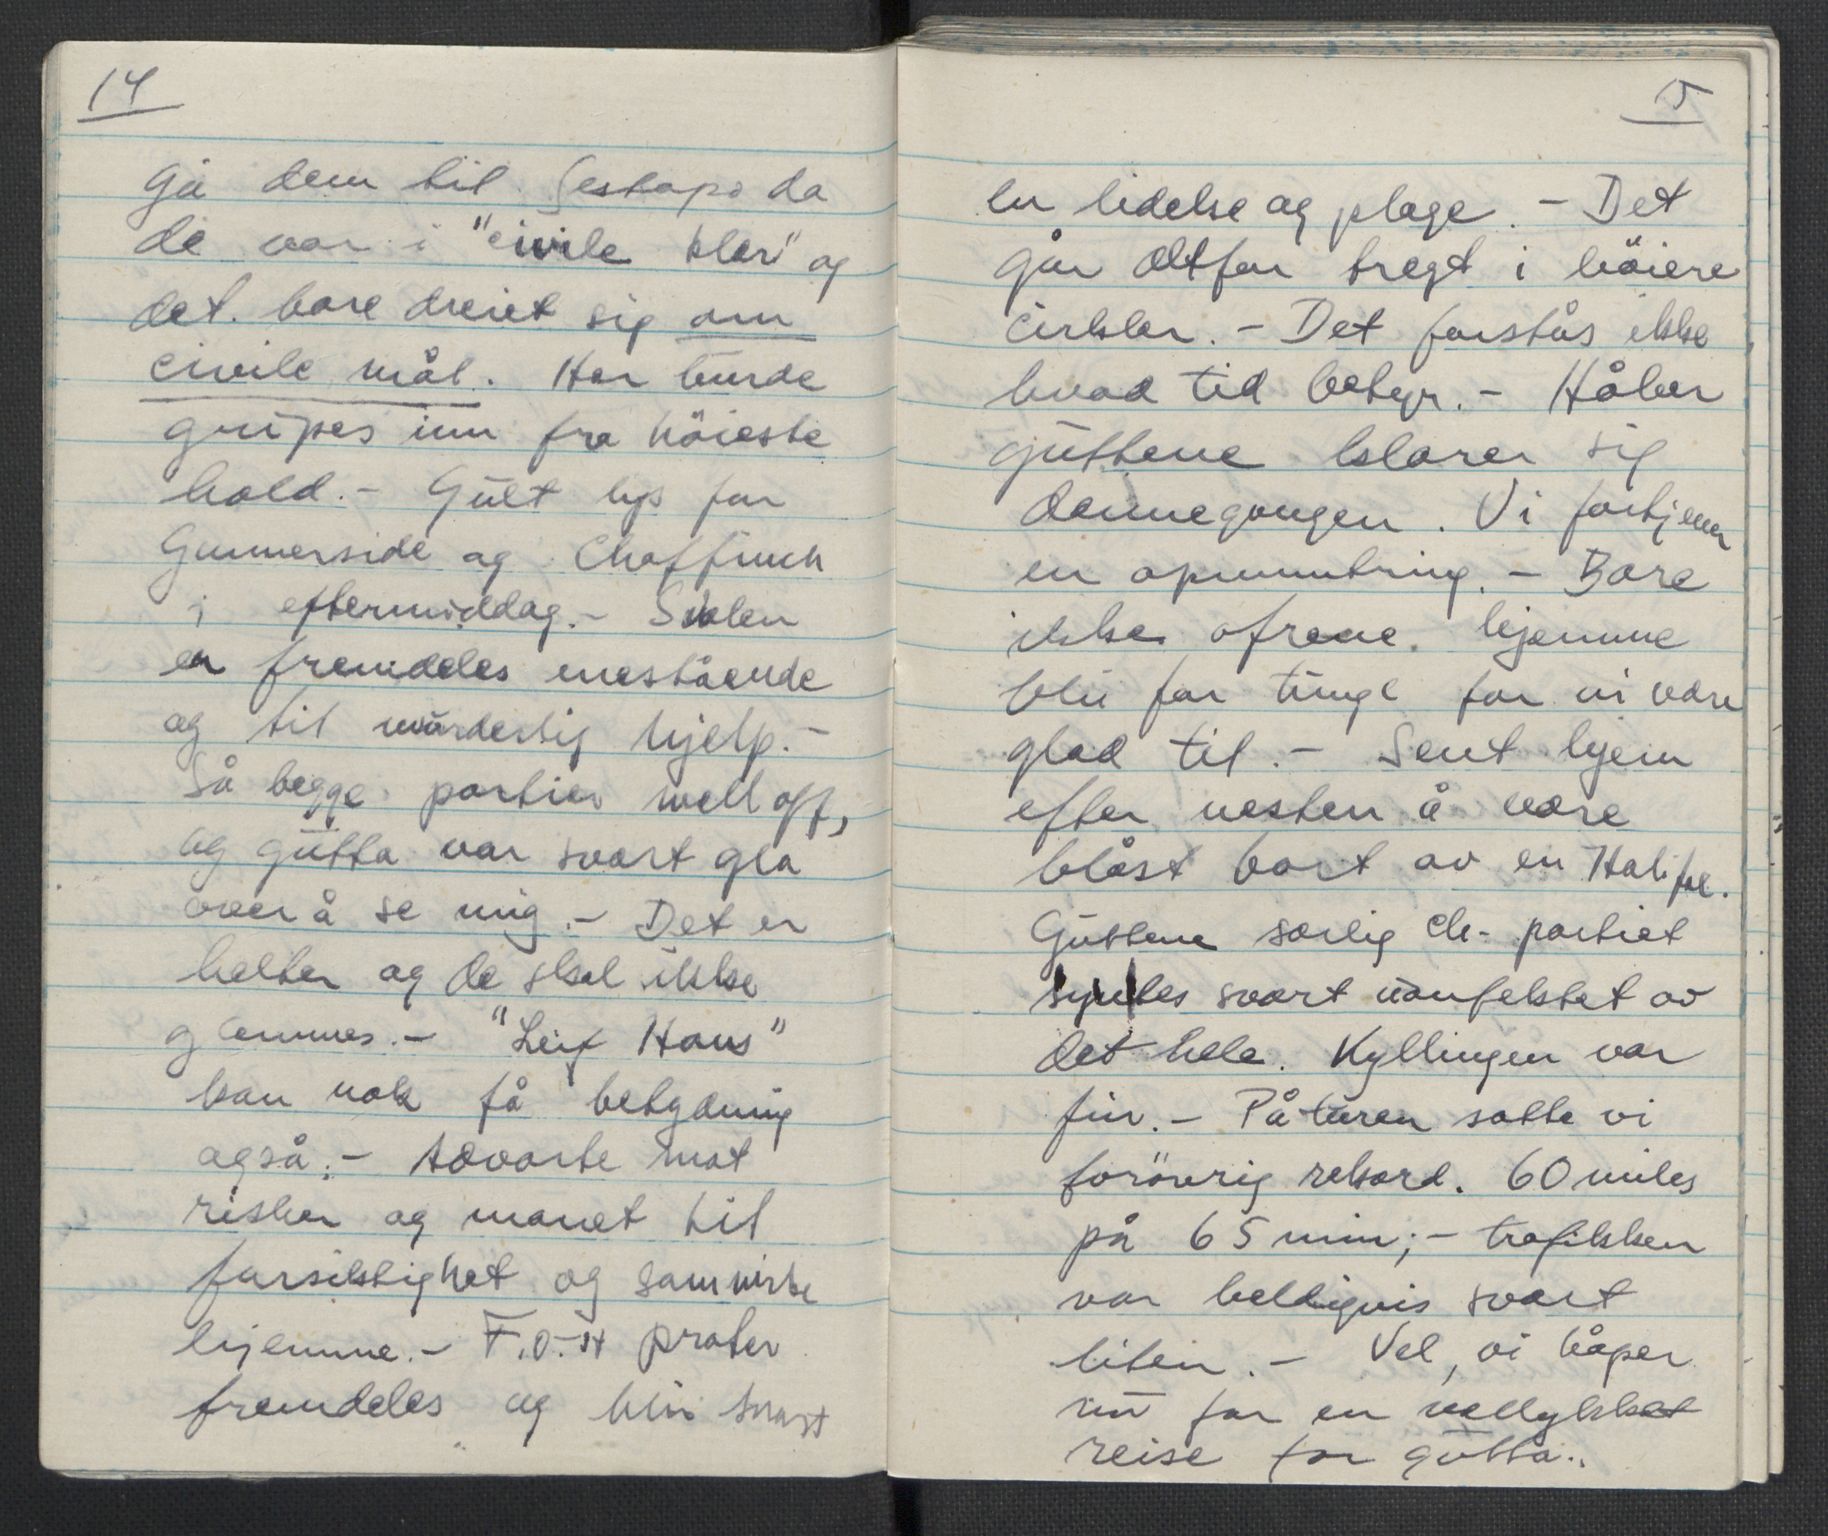 14
gå dem til Gestapo da
de var i "civile klær" og
det bare dreiet sig om
civile mål. Her burde
gripes inn fra höieste
hold. - Gult lys for
Gunnerside og Chaffinch
i eftermiddag. - Skolen
er fremdeles enestående
og til uvurderlig hjelp. -
Så begge partier well off,
og gutta var svært gla
over å se mig. - Det er
helter og de skal ikke
glemmes. - "Leif Hans"
kan nok få betydning
også. - Advarte mot
risker og manet til
forsiktighet og samvirke
hjemme. - F.O. IV prater
fremdeles og blir snart
5
en lidelse og plage. - Det
går altfor tregt i höiere
cirkler. - Det forstås ikke
hvad tid betyr. - Håber
guttene klarer sig
dennegangen. Vi fortjener
en opmuntring. - Bare
ikke ofrene hjemme
blir for tunge for vi være
glad til. - Sent hjem
efter nesten å være
blåst bort av en Halifax.
Guttene særlig Ch- partiet
syntes svært uanfektet av
det hele. Kyllingen var
fin. - På turen satte vi
forövrig rekord. 60 miles
på 65 min; - trafikken
var heldigvis svært
liten. - Vel, vi håper
nu for en vellykket
reise for gutta..